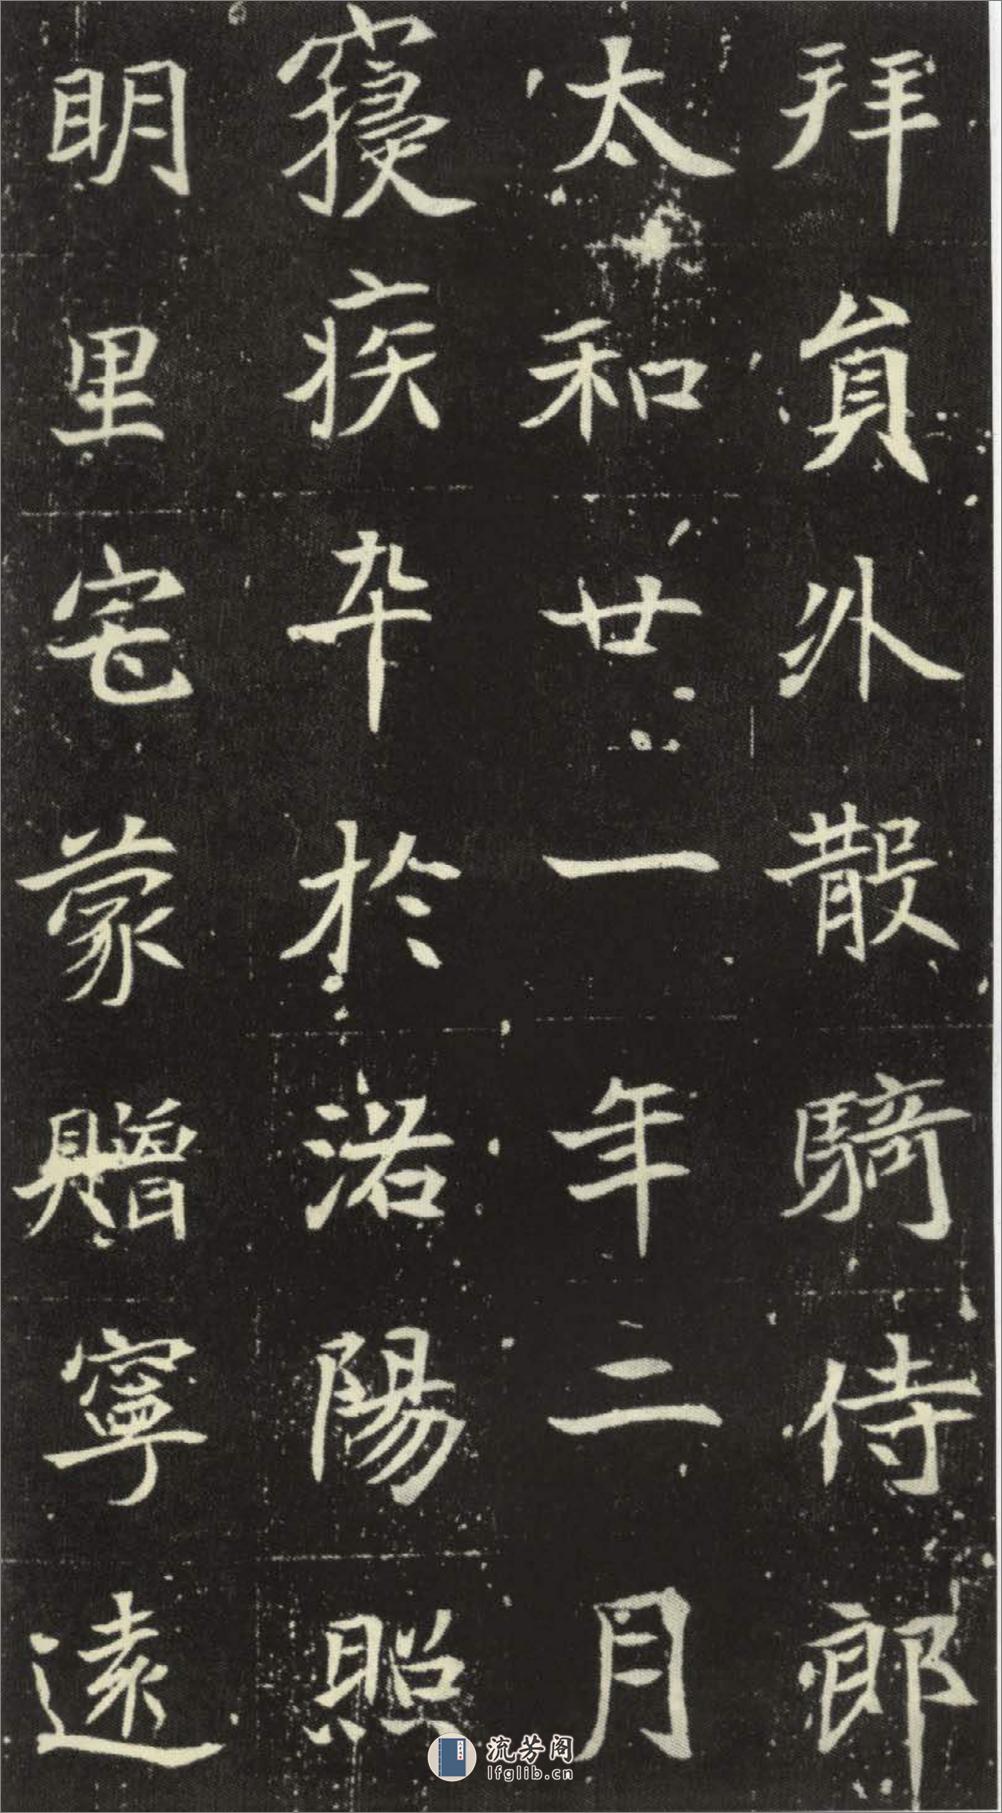 拜員外散騎侍郎
太和廿一年二月
寑疾卒於洛陽照
明里宅蒙贈寧遠
流芳阁
lfglib.cn